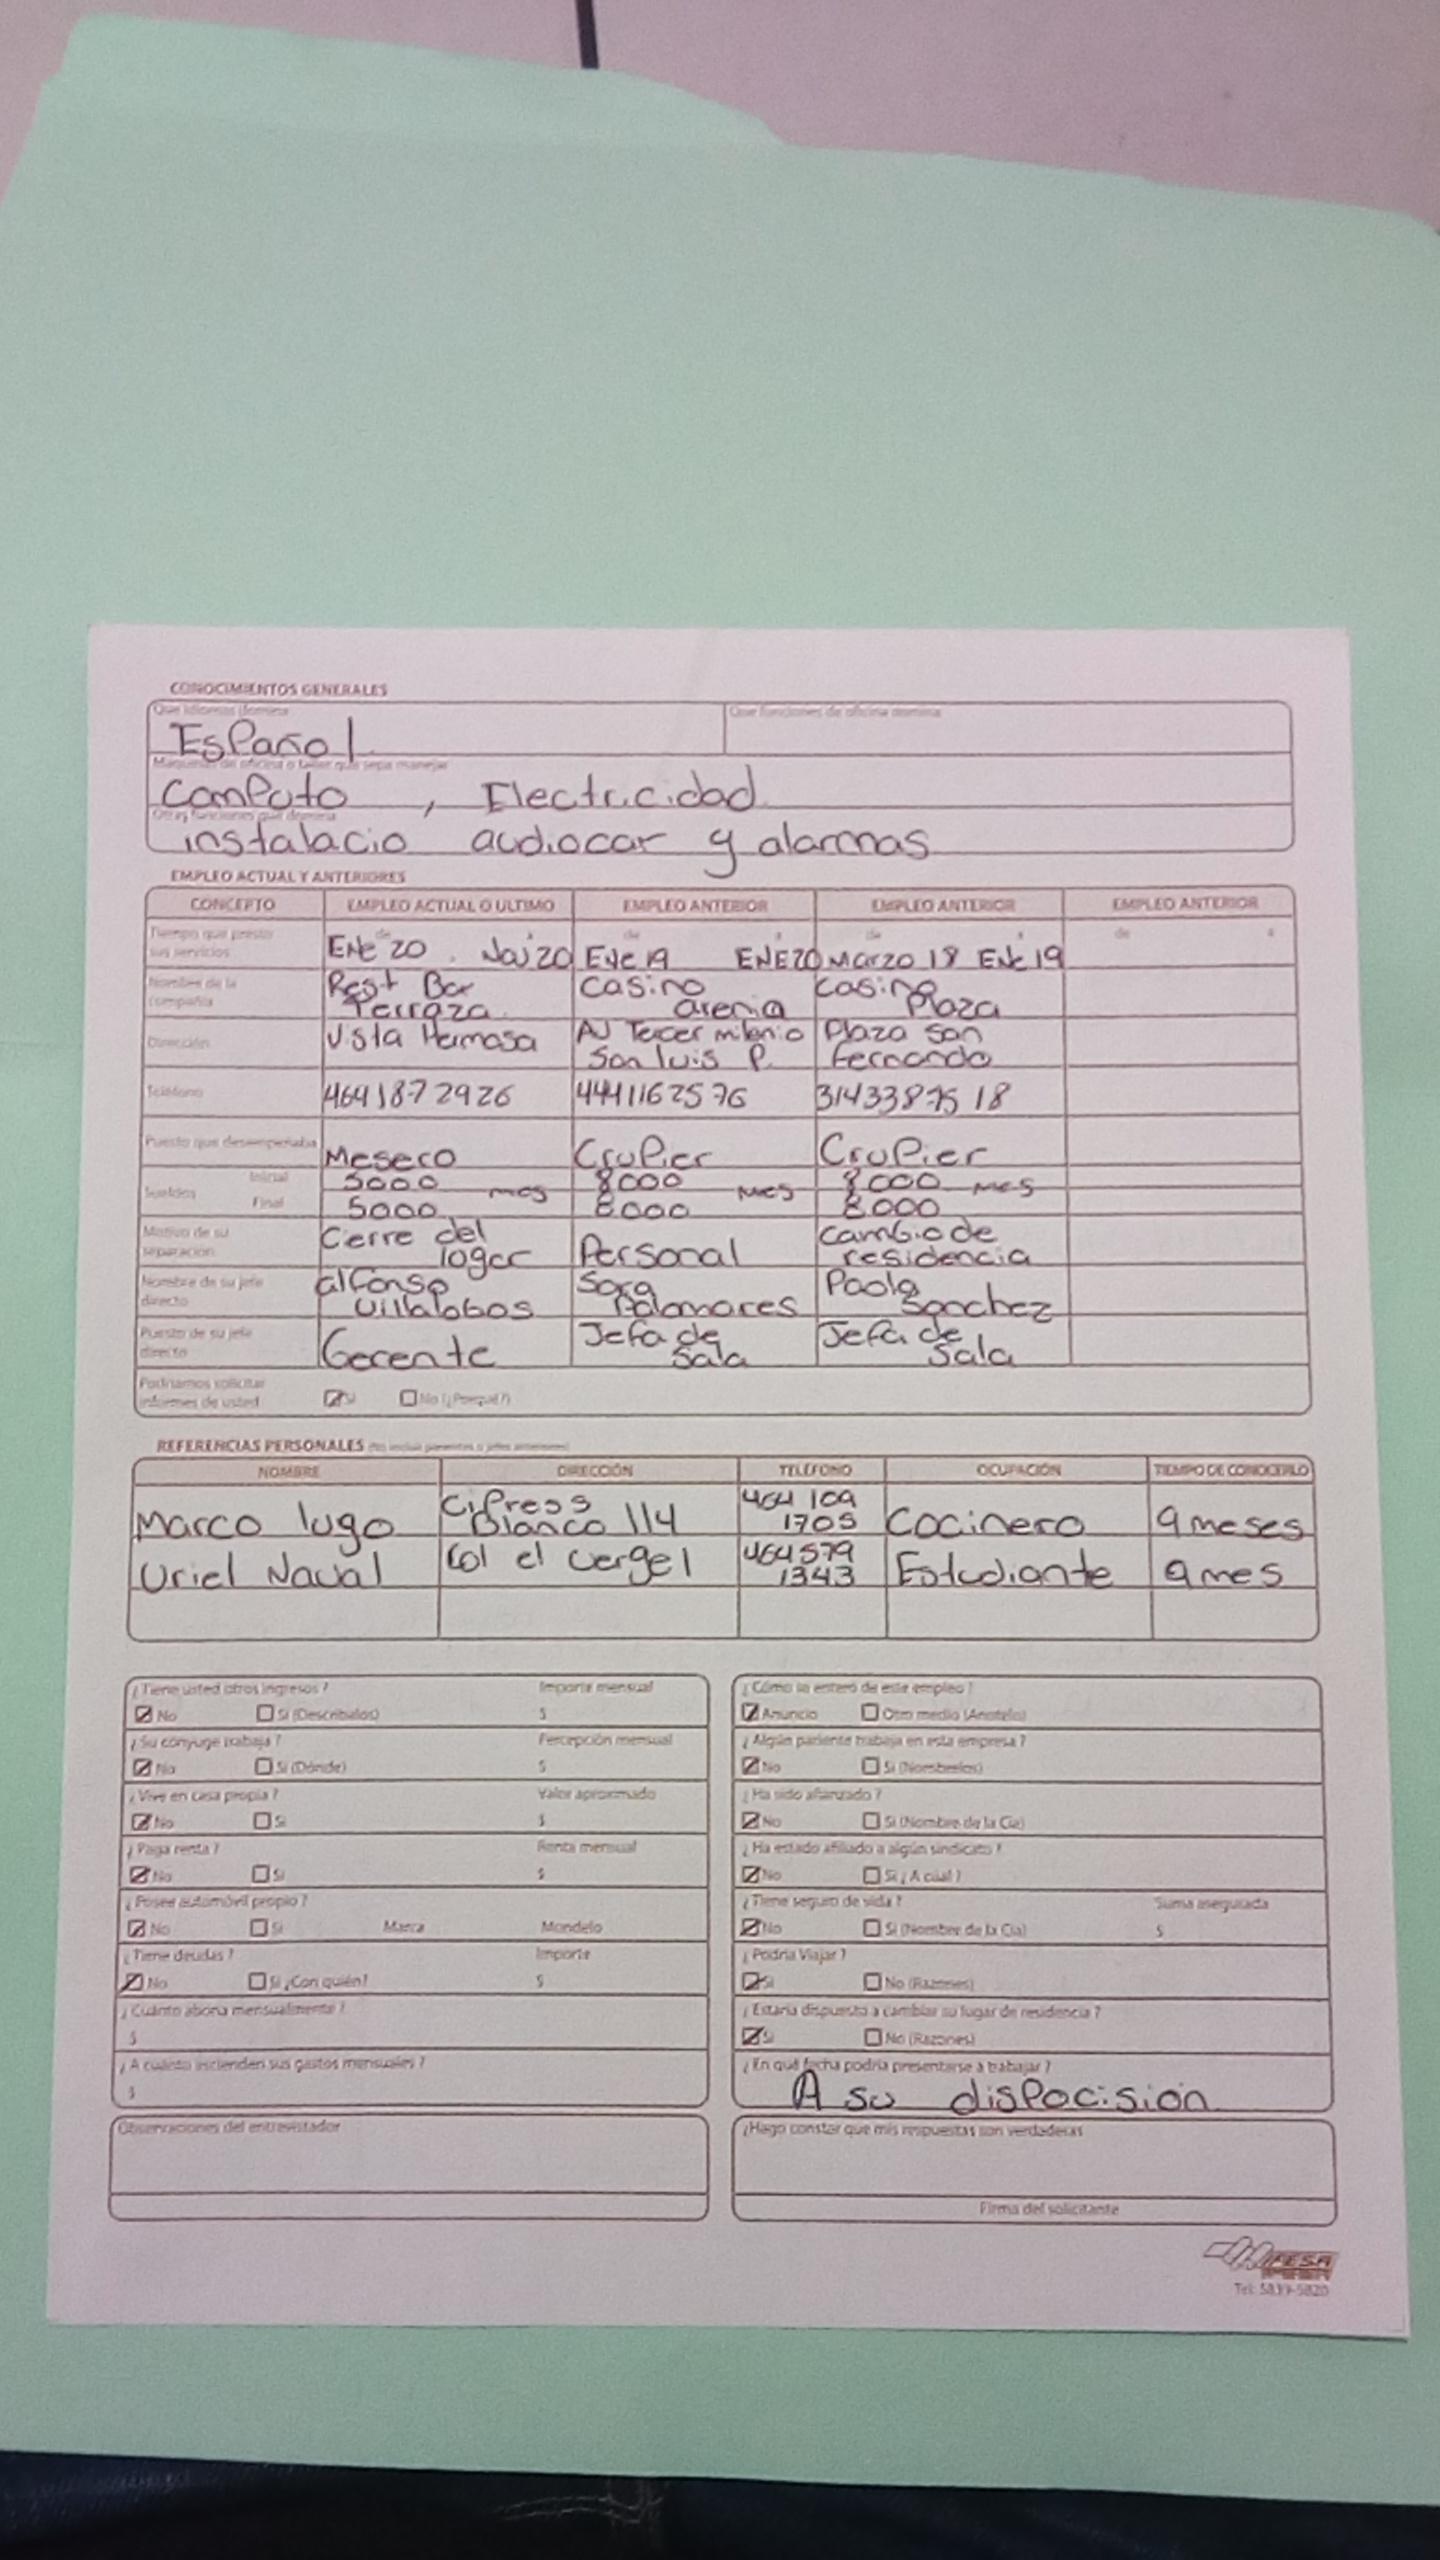 CONOCIMIENTOS GENERALES
Que idiomas domina
Que funciones de oficina domina
Español
Maquinas de oficina o taller que sepa manejar
computo , Electricidad
Otras funciones que domina
instalacio audiocar y alarmas
EMPLEO ACTUAL Y ANTERIORES
CONCEPTO EMPLEO ACTUAL O ULTIMO EMPLEO ANTERIOR EMPLEO ANTERIOR EMPLEO ANTERIOR
Tiempo que prestó sus servicios
de de a de a de a
ENE 20 . Nov 20 ENE 19 ENE20 Marzo 18 ENE 19
Nombre de la compañía
Rest Bar Terraza casino arenia casino Plaza
Dirección
Vista Hermosa AV Tercer milenio San luis P. Plaza san Fernando
Teléfono
4641872926 4441162576 3143387518
Puesto que desempeñaba
Mesero Crupier Crupier
Sueldos
Inicial
5000 mes 8000 Mes 8000 mes
Final
5000 8000 8000
Motivo de su separación
Cierre del logar Personal cambio de residencia
Nombre de su jefe directo
alfonso Villalobos Sara Palomares Paola Sanchez
Puesto de su jefe directo
Gerente Jefa de Sala Jefa de Sala
Podríamos solicitar informes de usted
Si No (¿Porqué?)
REFERENCIAS PERSONALES (No incluir parientes o jefes anteriores)
NOMBRE DIRECCIÓN TELÉFONO OCUPACIÓN TIEMPO DE CONOCERLO
Marco lugo Cipress Blanco 114 464 109 1705 Cocinero 9 meses
Uriel Naval Col el vergel 464 579 1343 Estudiante 9 mes
¿Tiene usted otros ingresos? Importe mensual
No Si (Descríbalos) $
¿Su cónyuge trabaja? Percepción mensual
No Si (Dónde) $
¿Vive en casa propia? Valor aproximado
No Si $
¿Paga renta? Renta mensual
No Si $
¿Posee automóvil propio?
No Si Marca Mondelo
¿Tiene deudas? Importe
No Si ¿Con quién? $
¿Cuánto abona mensualmente?
$
¿A cuánto ascienden sus gastos mensuales?
$
¿Cómo se enteró de este empleo?
Anuncio Otro medio (Anótelo)
¿Algún pariente trabaja en esta empresa?
No Si (Nómbrelos)
¿Ha sido afianzado?
No Si (Nombre de la Cia)
¿Ha estado afiliado a algún sindicato?
No Si ¿A cuál?
¿Tiene seguro de vida? Suma asegurada
No Si (Nombre de la Cia) $
¿Podría Viajar?
Si No (Razones)
¿Estaría dispuesto a cambiar su lugar de residencia?
Si No (Razones)
¿En qué fecha podría presentarse a trabajar?
A su dispocisión
Observaciones del entrevistador
¿Hago constar que mis respuestas son verdaderas
Firma del solicitante
Tel: 5839-5820